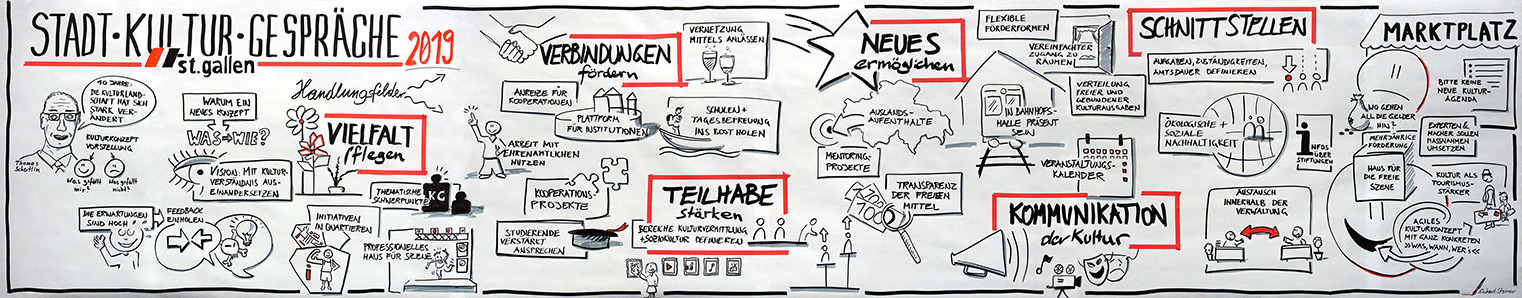 STADT·KULTUR·GESPRÄCHE
2019
st.gallen
10 JAHRE:
DIE KULTURLAND-
SCHAFT HAT SICH
STARK VER-
ÄNDERT
KULTURKONZEPT
VORSTELLUNG
Was gefällt
mir?
Was gefällt
nicht?
Thomas
Scheitlin
DIE ERWARTUNGEN
SIND HOCH
WARUM EIN
NEUES KONZEPT
WAS→WIE?
VISION: MIT KULTUR-
VERSTÄNDNIS AUS-
EINANDERSETZEN
FEEDBACK
EINHOLEN
Handlungsfelder
VIELFALT
pflegen
THEMATISCHE
SCHWERPUNKTE
INITIATIVEN
IN QUARTIEREN
PROFESSIONELLES
HAUS FÜR SZENE
VERBINDUNGEN
fördern
VERNETZUNG
MITTELS ANLÄSSEN
ANREIZE FÜR
KOOPERATIONEN
PLATTFORM
FÜR INSTITUTIONEN
SCHULEN +
TAGESBETREUUNG
INS BOOT HOLEN
ARBEIT MIT
EHRENAMTLICHEN
NUTZEN
KOOPERATIONS-
PROJEKTE
STUDIERENDE
VERSTÄRKT
ANSPRECHEN
TEILHABE
stärken
BEREICHE KULTURVERMITTLUNG
+SOZIOKULTUR DEFINIEREN
NEUES
ermöglichen
FLEXIBLE
FÖRDERFORMEN
VEREINFACHTER
ZUGANG ZU
RÄUMEN
AUSLANDS-
AUFENTHALTE
MENTORING-
PROJEKTE
VERTEILUNG
FREIER UND
GEBUNDENER
KULTURAUSGABEN
IN BAHNHOFS-
HALLE PRÄSENT
SEIN
TRANSPARENZ
DER FREIEN
MITTEL
200
100
VERANSTALTUNGS-
KALENDER
KOMMUNIKATION
der Kultur
SCHNITTSTELLEN
AUFGABEN, ZUSTÄNDIGKEITEN,
AMTSDAUER DEFINIEREN
ÖKOLOGISCHE +
SOZIALE
NACHHALTIGKEIT
INFOS
ÜBER
STIFTUNGEN
AUSTAUSCH
INNERHALB DER
VERWALTUNG
MARKTPLATZ
BITTE KEINE
NEUE KULTUR-
AGENDA
WO GEHEN
ALL DIE GELDER
HIN?
MEHRJÄHRIGE
FÖRDERUNG
EXPERTEN &
MACHER SOLLEN
MASSNAHMEN
UMSETZEN
HAUS FÜR
DIE FREIE
SZENE
KULTUR ALS
TOURISMUS-
STÄRKER
AGILES
KULTURKONZEPT
MIT GANZ KONKRETEN
»WAS, WANN, WER«